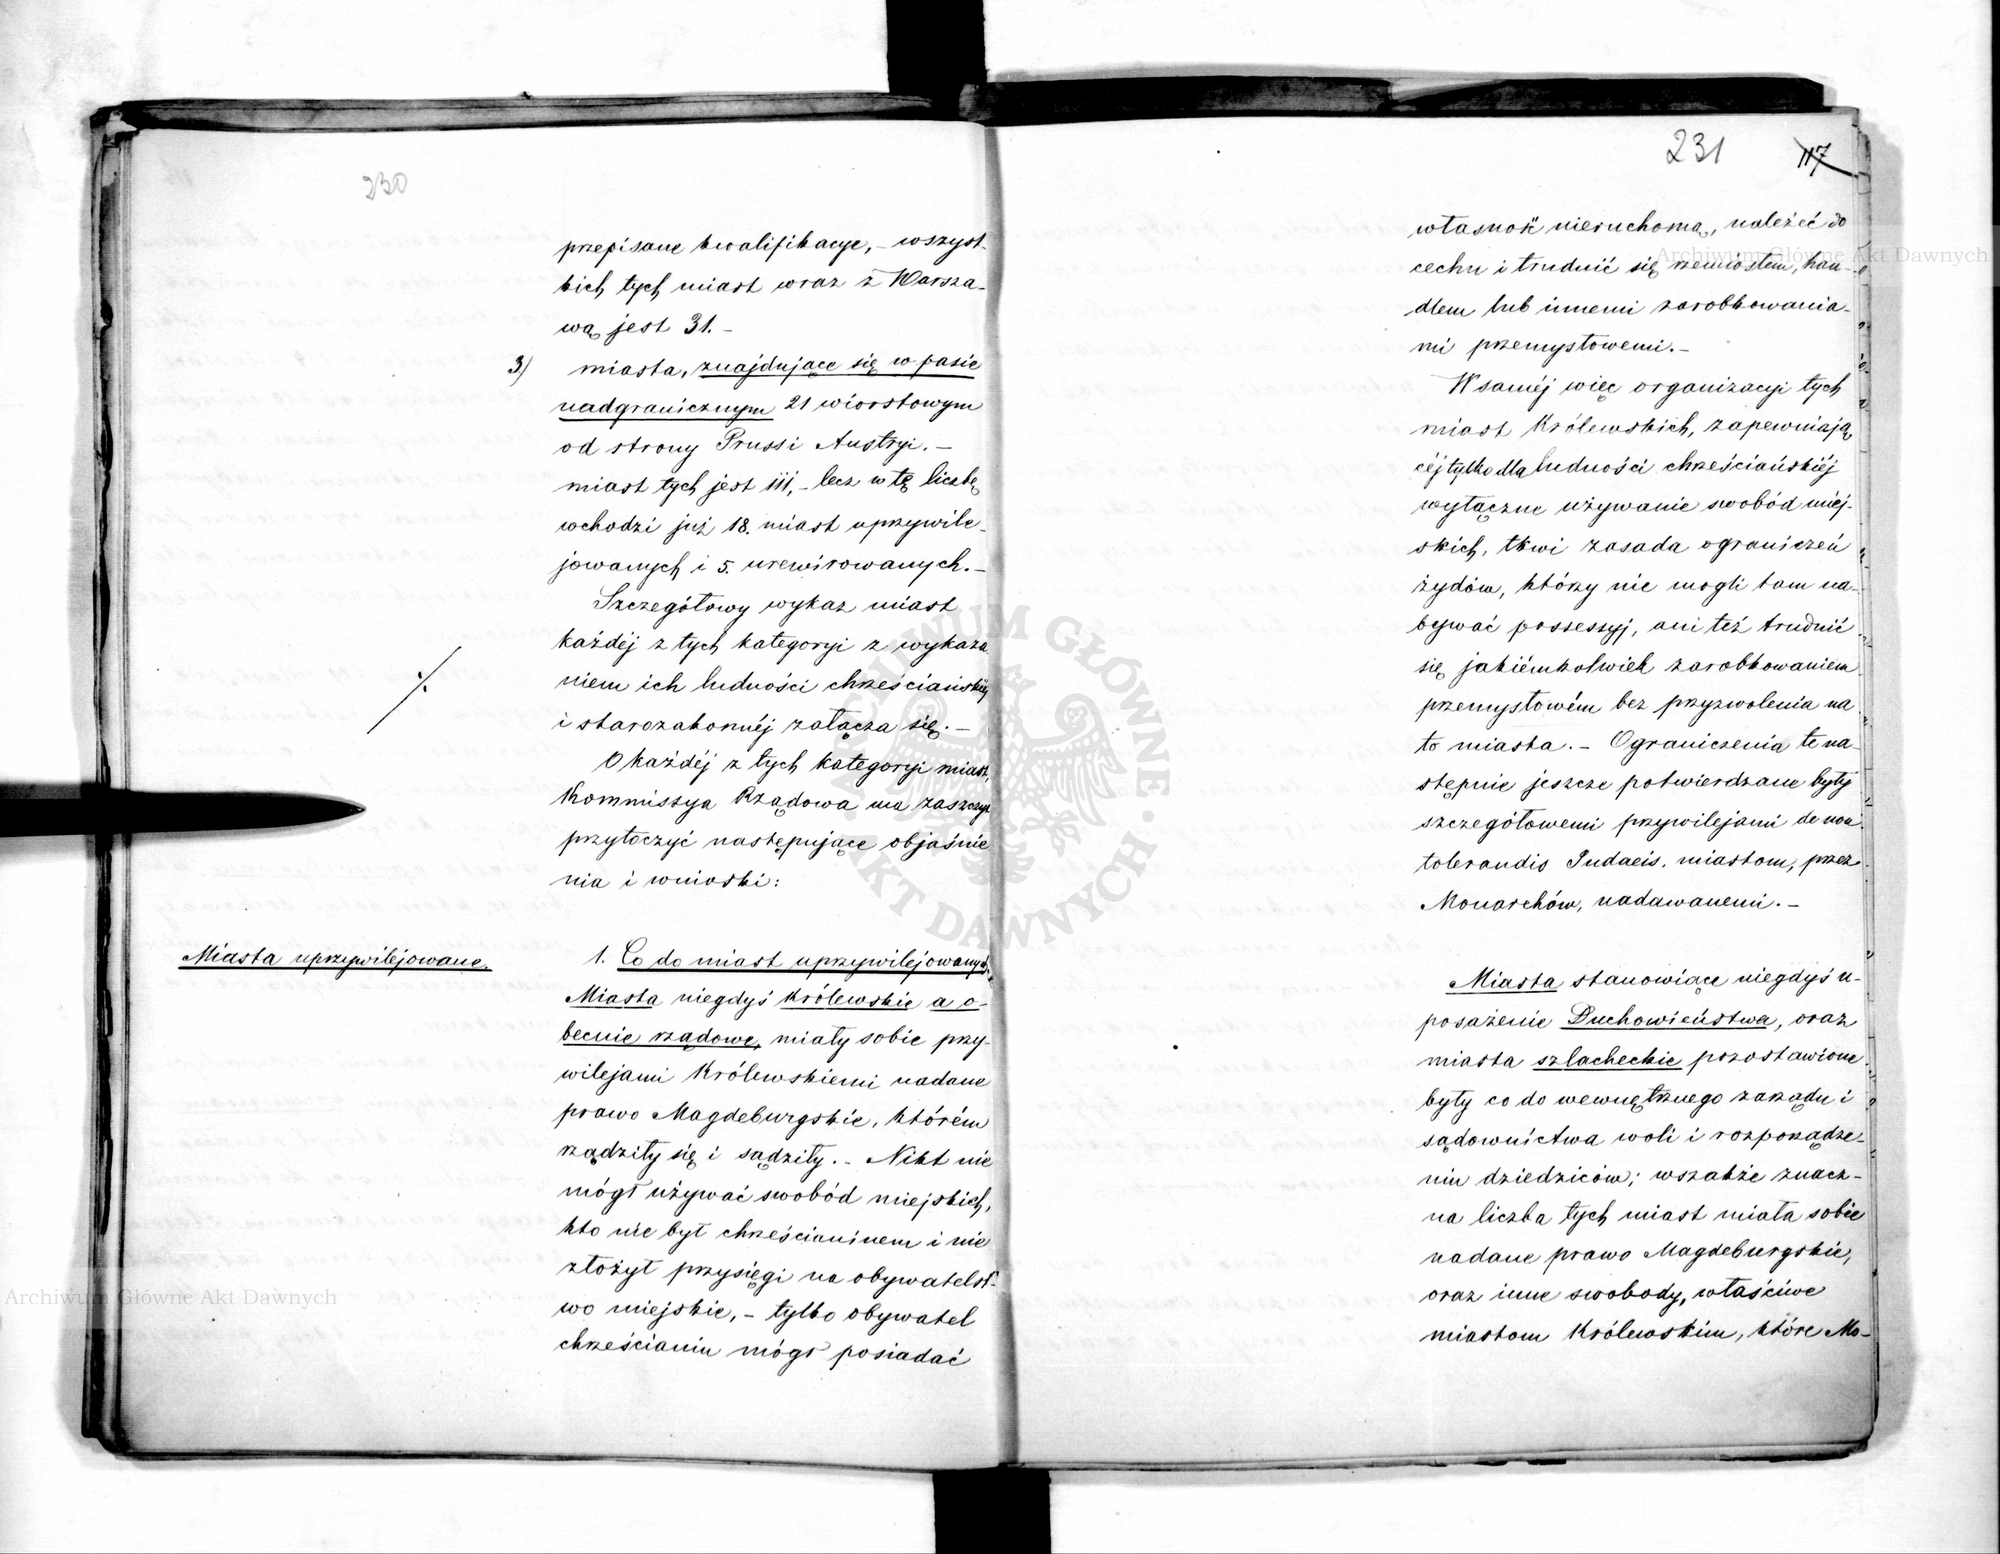 230
przepisane kwalifikacye, – wszyst-
kich tych miast wraz z Warsza-
wą jest 31. –
3) miasta, znajdujące się w pasie
nadgranicznym 21 wiorstowym
od strony Pruss i Austryi. –
miast tych jest 111, – lecz w tę liczbę
wchodzi już 18. miast uprzywile-
jowanych i 5. urewirowanych. –
Szczegółowy wykaz miast
każdéj z tych kategoryi z wykaza
niem ich ludności chrześciańskiéj
i starozakonnéj załącza się. –
O każdéj z tych kategoryi miast,
Kommissya Rządowa ma zaszczyt
przytoczyć następujące objaśnie
nia i wnioski:
Miasta uprzywilejowane.
1. Co do miast uprzywilejowanych.
Miasta niegdyś Królewskie a o-
becnie rządowe, miały sobie przy-
wilejami Królewskiemi nadane
prawo Magdeburgskie, którém
rządziły się i sądziły. – Nikt nie
mógł używać swobód miejskich,
kto nie był chrześcianinem i nie
złożył przysięgi na obywatelst-
wo miejskie, – tylko obywatel
chrześcianin mógł posiadać
231 117
własność nieruchomą, należéć do
cechu i trudnić się rzemiosłem, han-
dlem lub innemi zarobkowania-
mi przemysłowemi. –
W saméj więc organizacyi tych
miast Królewskich, zapewniają
céj tylko dla ludności chrześciańskiéj
wyłączne używanie swobód miej-
skich, tkwi zasada ograniczeń
żydów, którzy nie mogli tam na-
bywać possessyj, ani też trudnić
się jakiémkolwiek zarobkowaniem
przemysłowém bez przyzwolenia na
to miasta. – Ograniczenia te na-
stępnie jeszcze potwierdzane były
szczegółowemi przywilejami de non
tolerandis Judaeis, miastom, przez
Monarchów, nadawanemi. –
Miasta stanowiące niegdyś u-
posażenie Duchowieństwa, oraz
miasta szlacheckie pozostawione
były co do wewnętrznego zarządu i
sądownictwa woli i rozporządze-
niu dziedziców; wszakże znacz-
na liczba tych miast miała sobie
nadane prawo Magdeburgskie,
oraz inne swobody, właściwe
miastom Królewskim, które Mo-
Archiwum Główne Akt Dawnych
Archiwum Główne Akt Dawnych
ARCHIWUM GŁÓWNE AKT DAWNYCH